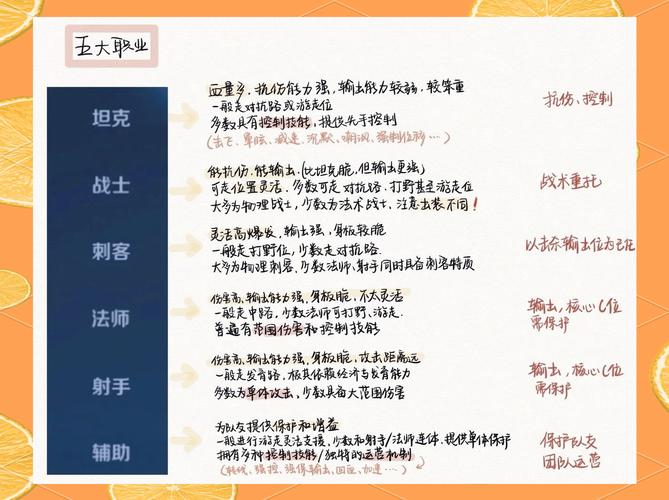 五大职业
坦克
血量多、抗伤能力强，输出能力较弱，较笨重
一般走对抗路或游走位
多数具有控制技能，提供先手控制
(击飞、晕眩、减速、沉默、嘲讽、强制位移…)
抗伤、控制
战士
能抗伤、能输出、(比坦克脆，但输出更强)
可走位置灵活、多数可走对抗路、打野甚至游走位
大多为物理战士，少数为法术战士，注意出装不同！
战术重托
刺客
灵活高爆发、输出强、身板较脆
一般走打野位，少数走对抗路
大多为物理刺客、少数法师、射手同时具备刺客特质
以击杀输出位为己任
法师
伤害高、输出能力强、身板脆、不太灵活
一般走中路，少数法师可打野、游走
普遍有范围伤害和控制技能
输出，核心C位
需保护
射手
伤害高、输出能力强、身板脆、攻击距离远
一般走发育路，极其依赖经济与发育能力
多数为单体攻击，少数具备大范围伤害
输出，核心C位
需保护
辅助
为队友提供保护和增益
一般进行游走灵活支援、少数和射手/法师连体、提供单体保护
拥有多种控制技能/独特的运营机制
(转线、强控、强保输出、回血、加速…)
保护队友
团队运营